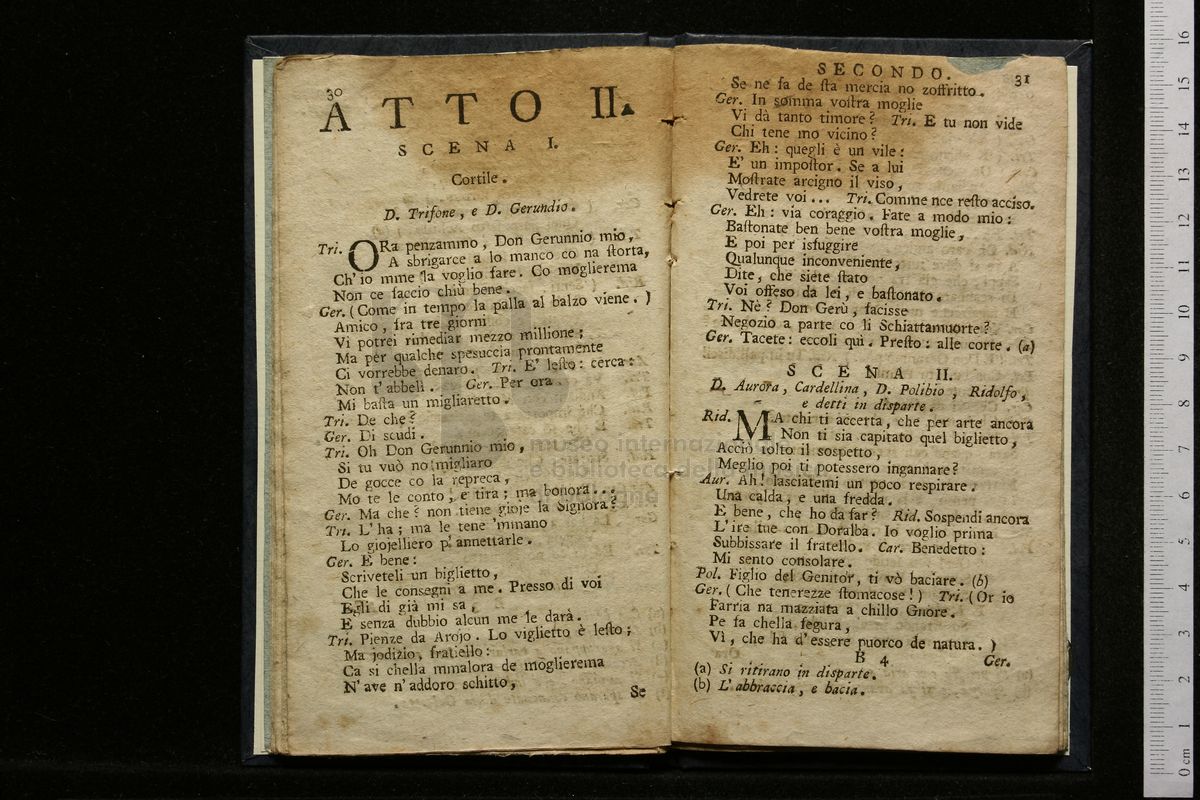 30
ATTO II.
SCENA I.
Cortile.
D. Trifone, e D. Gerundio.
Tri. ORa penzammo, Don Gerunnio mio,
A sbrigarce a lo manco co na ſtorta,
Ch' io mme la voglio fare. Co moglierema
Non ce faccio chiù bene.
Ger. (Come in tempo la palla al balzo viene. )
Amico, fra tre giorni
Vi potrei rimediar mezzo millione;
Ma per qualche speſuccia prontamente
Ci vorrebbe denaro. Tri. E' leſto: cerca:
Non t' abbeli. Ger. Per ora
Mi baſta un migliaretto.
Tri. De che?
Ger. Di scudi.
Tri. Oh Don Gerunnio mio,
Si tu vuò no migliaro
De gocce co la repreca,
Mo te le conto, e tira; ma bonora...
Ger. Ma che? non tiene gioje la Signora?
Tri. L' ha; ma le tene 'mmano
Lo giojelliero p' annettarle.
Ger. E bene:
Scriveteli un biglietto,
Che le consegni a me. Presso di voi
Egli di già mi sa,
E senza dubbio alcun me le darà.
Tri. Pienze da Arojo. Lo viglietto è leſto;
Ma jodizio, fratiello:
Ca si chella mmalora de moglierema
N' ave n' addoro schitto,
Se
SECONDO. 31
Se ne fa de ſta mercia no zoffritto.
Ger. In somma voſtra moglie
Vi dà tanto timore? Tri. E tu non vide
Chi tene mo vicino?
Ger. Eh: quegli è un vile:
E' un impoſtor. Se a lui
Moſtrate arcigno il viso,
Vedrete voi... Tri. Comme nce reſto acciso.
Ger. Eh: via coraggio. Fate a modo mio:
Baſtonate ben bene voſtra moglie,
E poi per isfuggire
Qualunque inconveniente,
Dite, che siete ſtato
Voi offeso da lei, e baſtonato.
Tri. Nè? Don Gerù, facisse
Negozio a parte co li Schiattamuorte?
Ger. Tacete: eccoli qui. Preſto: alle corte. (a)
SCENA II.
D. Aurora, Cardellina, D. Polibio, Ridolfo,
e detti in disparte.
Rid. MA chi ti accerta, che per arte ancora
Non ti sia capitato quel biglietto,
Acciò tolto il sospetto,
Meglio poi ti potessero ingannare?
Aur. Ah! lasciatemi un poco respirare.
Una calda, e una fredda.
E bene, che ho da far? Rid. Sospendi ancora
L' ire tue con Doralba. Io voglio prima
Subbissare il fratello. Car. Benedetto:
Mi sento consolare.
Pol. Figlio del Genitor, ti vò baciare. (b)
Ger. (Che tenerezze ſtomacose!) Tri. (Or io
Farria na mazziata a chillo Gnore.
Pe fa chella fegura,
Vì, che ha d' essere puorco de natura. )
B 4 Ger.
(a) Si ritirano in disparte.
(b) L' abbraccia, e bacia.
museo internaz
e biblioteca della musica